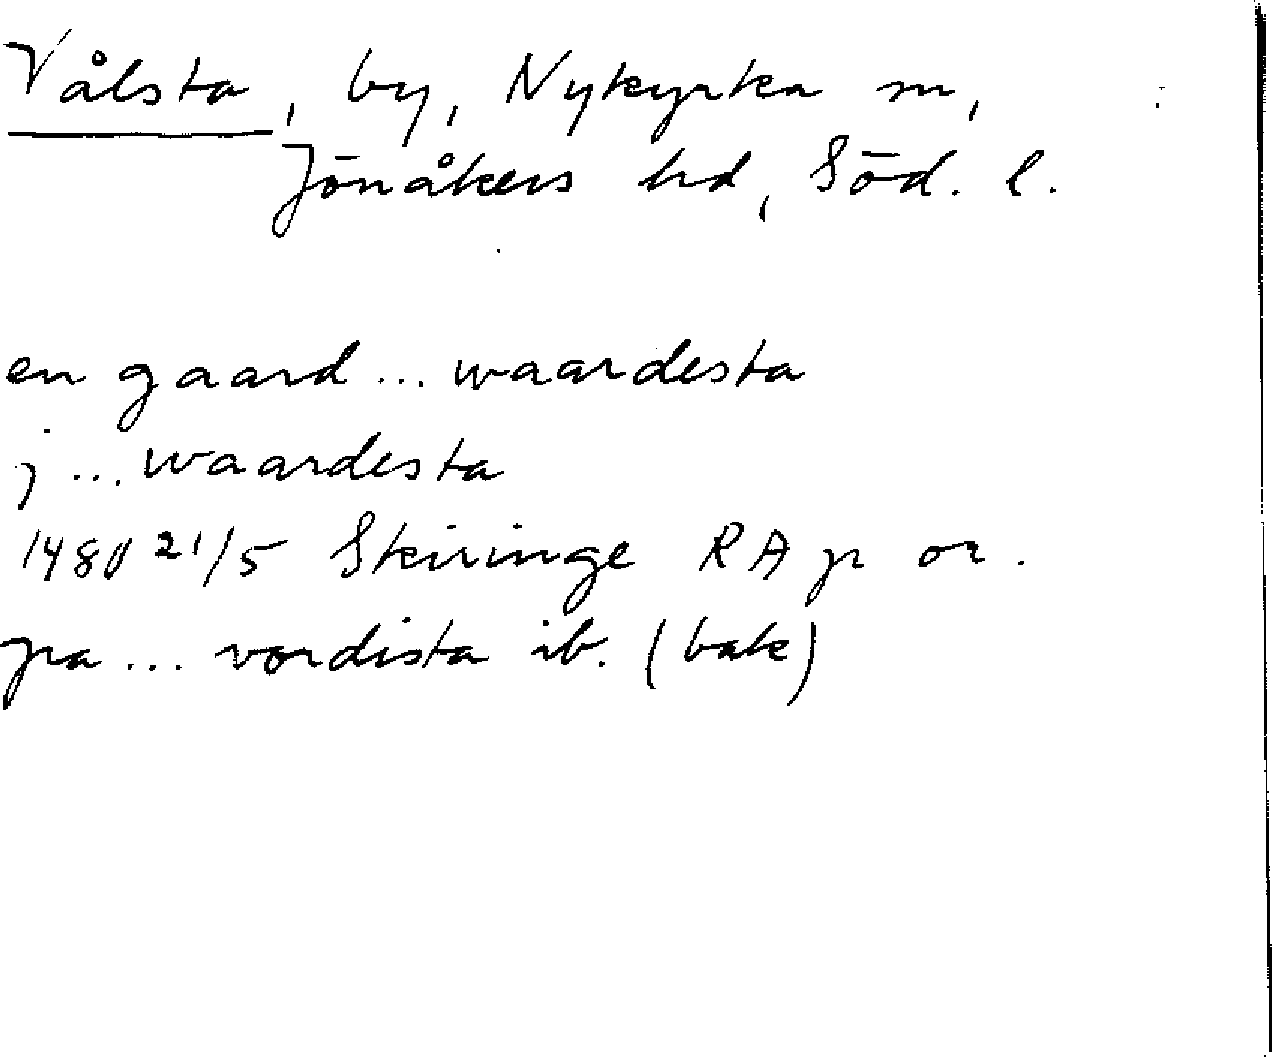 Vålsta, by, Nykyrka sn,
Jönåkers hd, Söd. l.
en gaard ... waardesta
j ... waardesta
1480 21/5 Skiringe RA p or.
pa ... vordista ib. (bak)